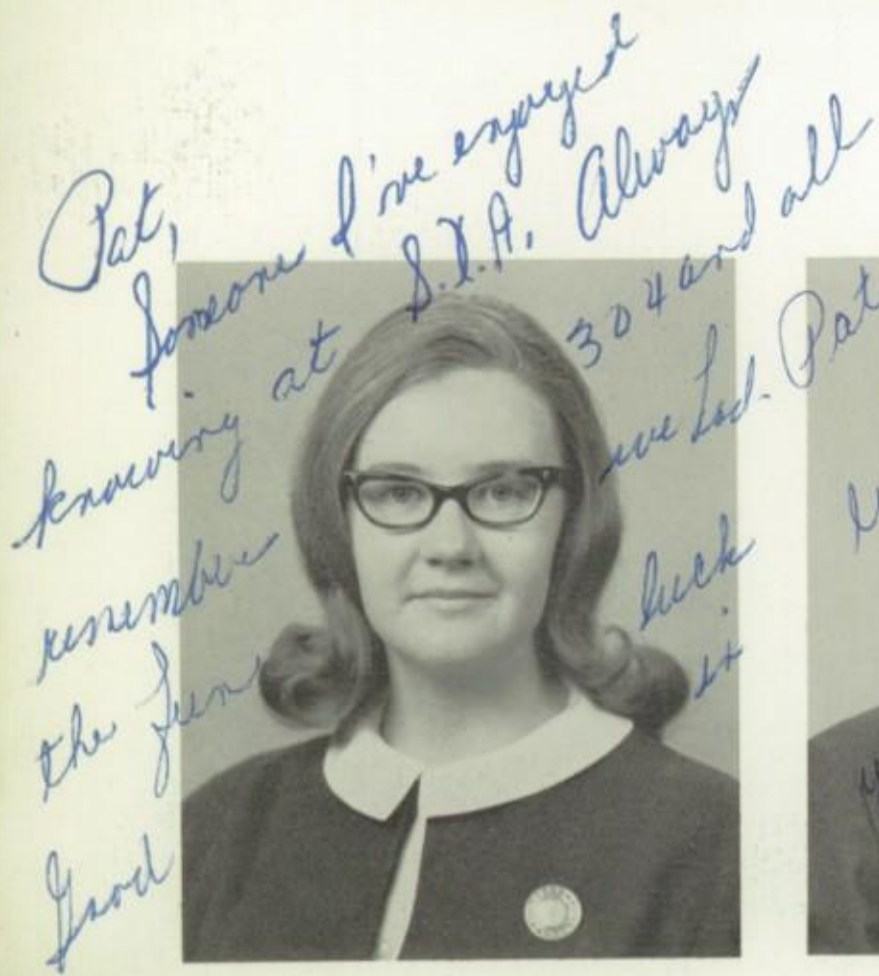 Pat,
Someone I've enjoyed
knowing at S.D.A. Always
remember 304 and all
the fun we had. Pat
Good luck